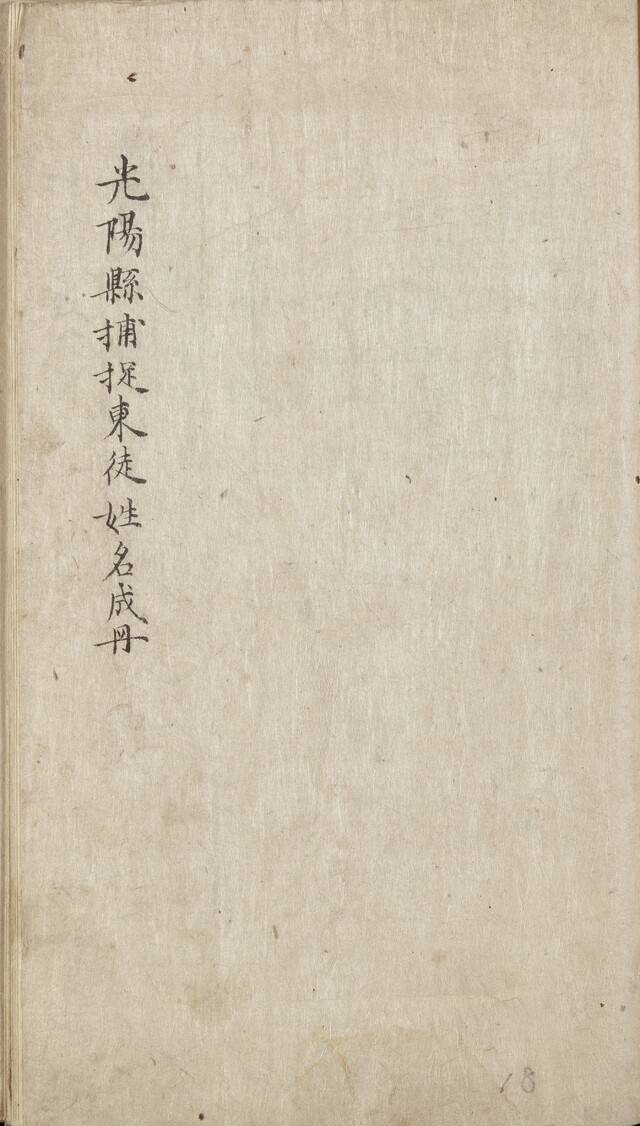 光陽縣捕捉東徒姓名成冊
18